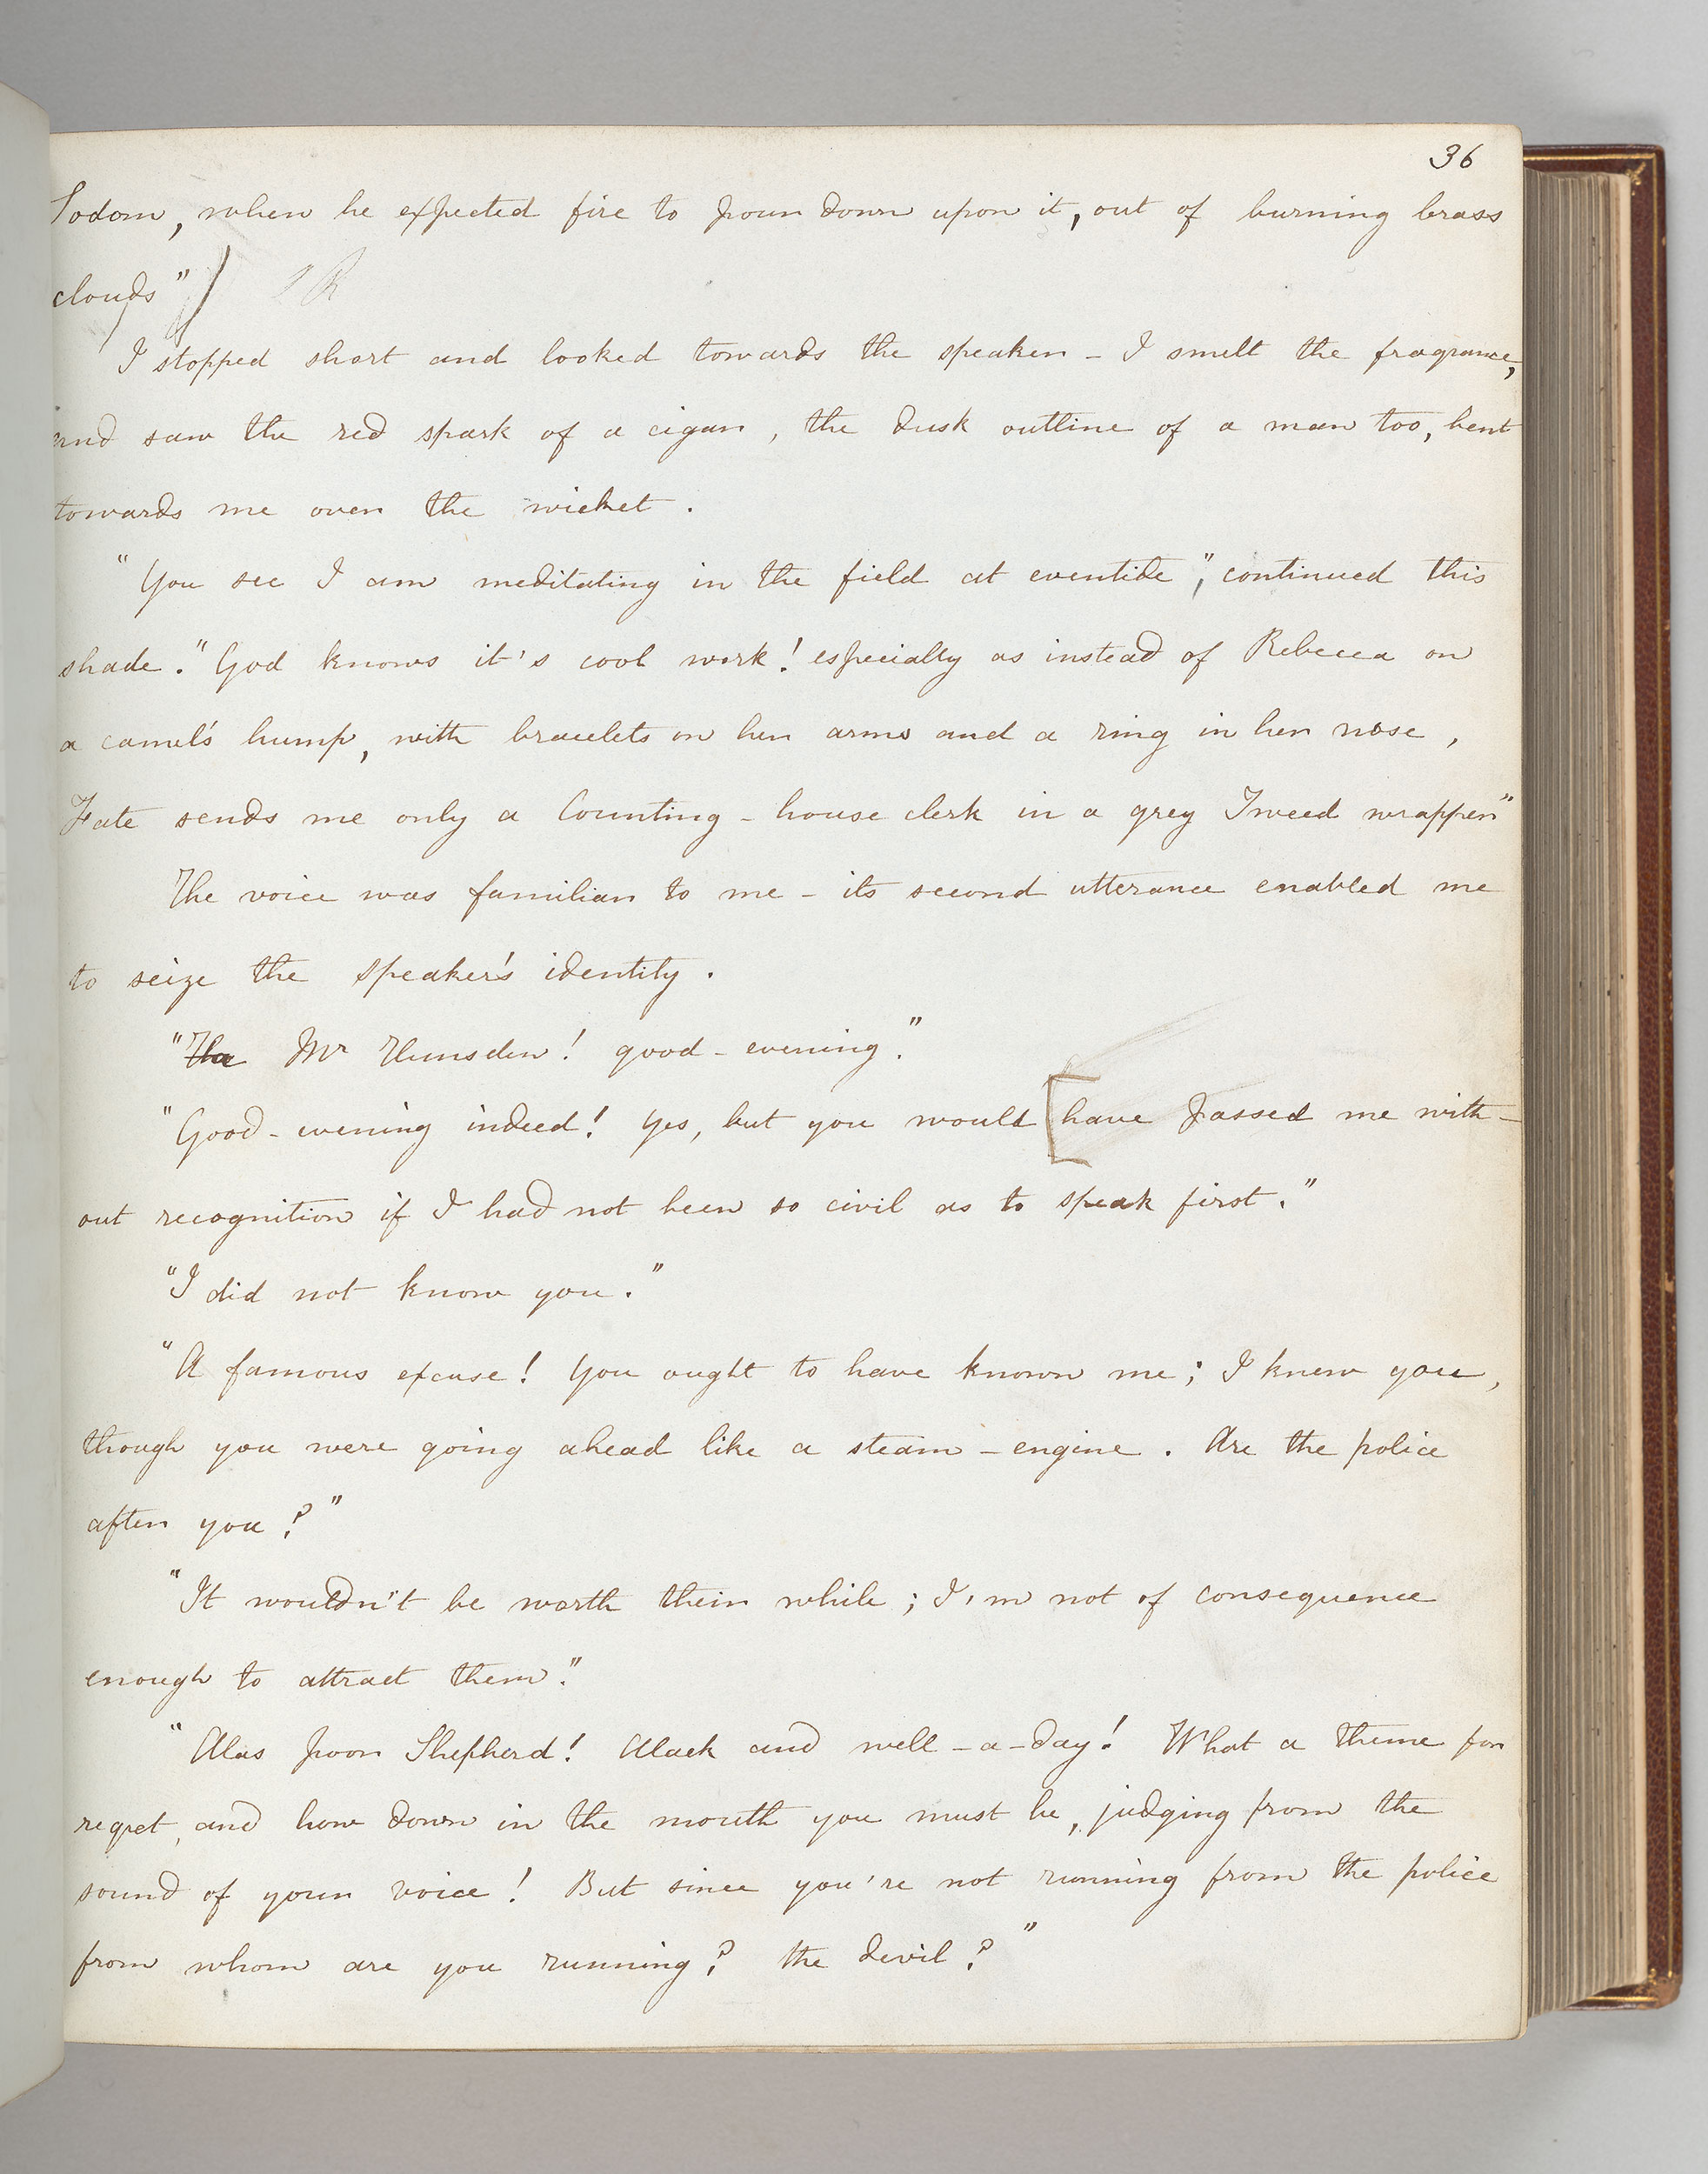 36
Sodom, when he expected fire to pour down upon it, out of burning brass
clouds"
I stopped short and looked towards the speaker - I smelt the fragrance,
and saw the red spark of a cigar, the dusk outline of a man too, bent
towards me over the wicket.
"You see I am meditating in the field at eventide", continued this
shade. "God knows it's cool work! especially as instead of Rebecca on
a camel's hump, with bracelets on her arms and a ring in her nose,
Fate sends me only a Counting-house clerk in a grey Tweed wrapper"
The voice was familiar to me - its second utterance enabled me
to seize the speaker's identity.
" Mr Hunsden! good-evening."
"Good-evening indeed! yes, but you would [have passed me with-
out recognition if I had not been so civil as to speak first."
"I did not know you."
"A famous excuse! You ought to have known me; I knew you,
though you were going ahead like a steam-engine. Are the police
after you?"
"It wouldn't be worth their while; I'm not of consequence
enough to attract them."
"Alas poor Shepherd! Alack and well-a-day! What a theme for
regret, and how down in the mouth you must be, judging from the
sound of your voice! But since you're not running from the police
from whom are you running? the devil?"